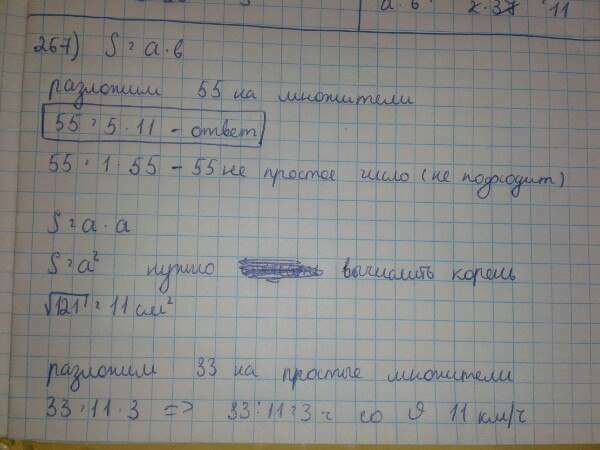 а. в 2. 37 11
267) S = a · в
разложим 55 на множители
55 = 5 · 11 - ответ
55 = 1 · 55 - 55 не простое число (не подходит)
S = a · a
S = a² нужно вычислить корень
√121 = 11 см²
разложим 33 на простые множители
33 = 11 · 3 => 33 : 11 = 3 ч со ϑ 11 км/ч